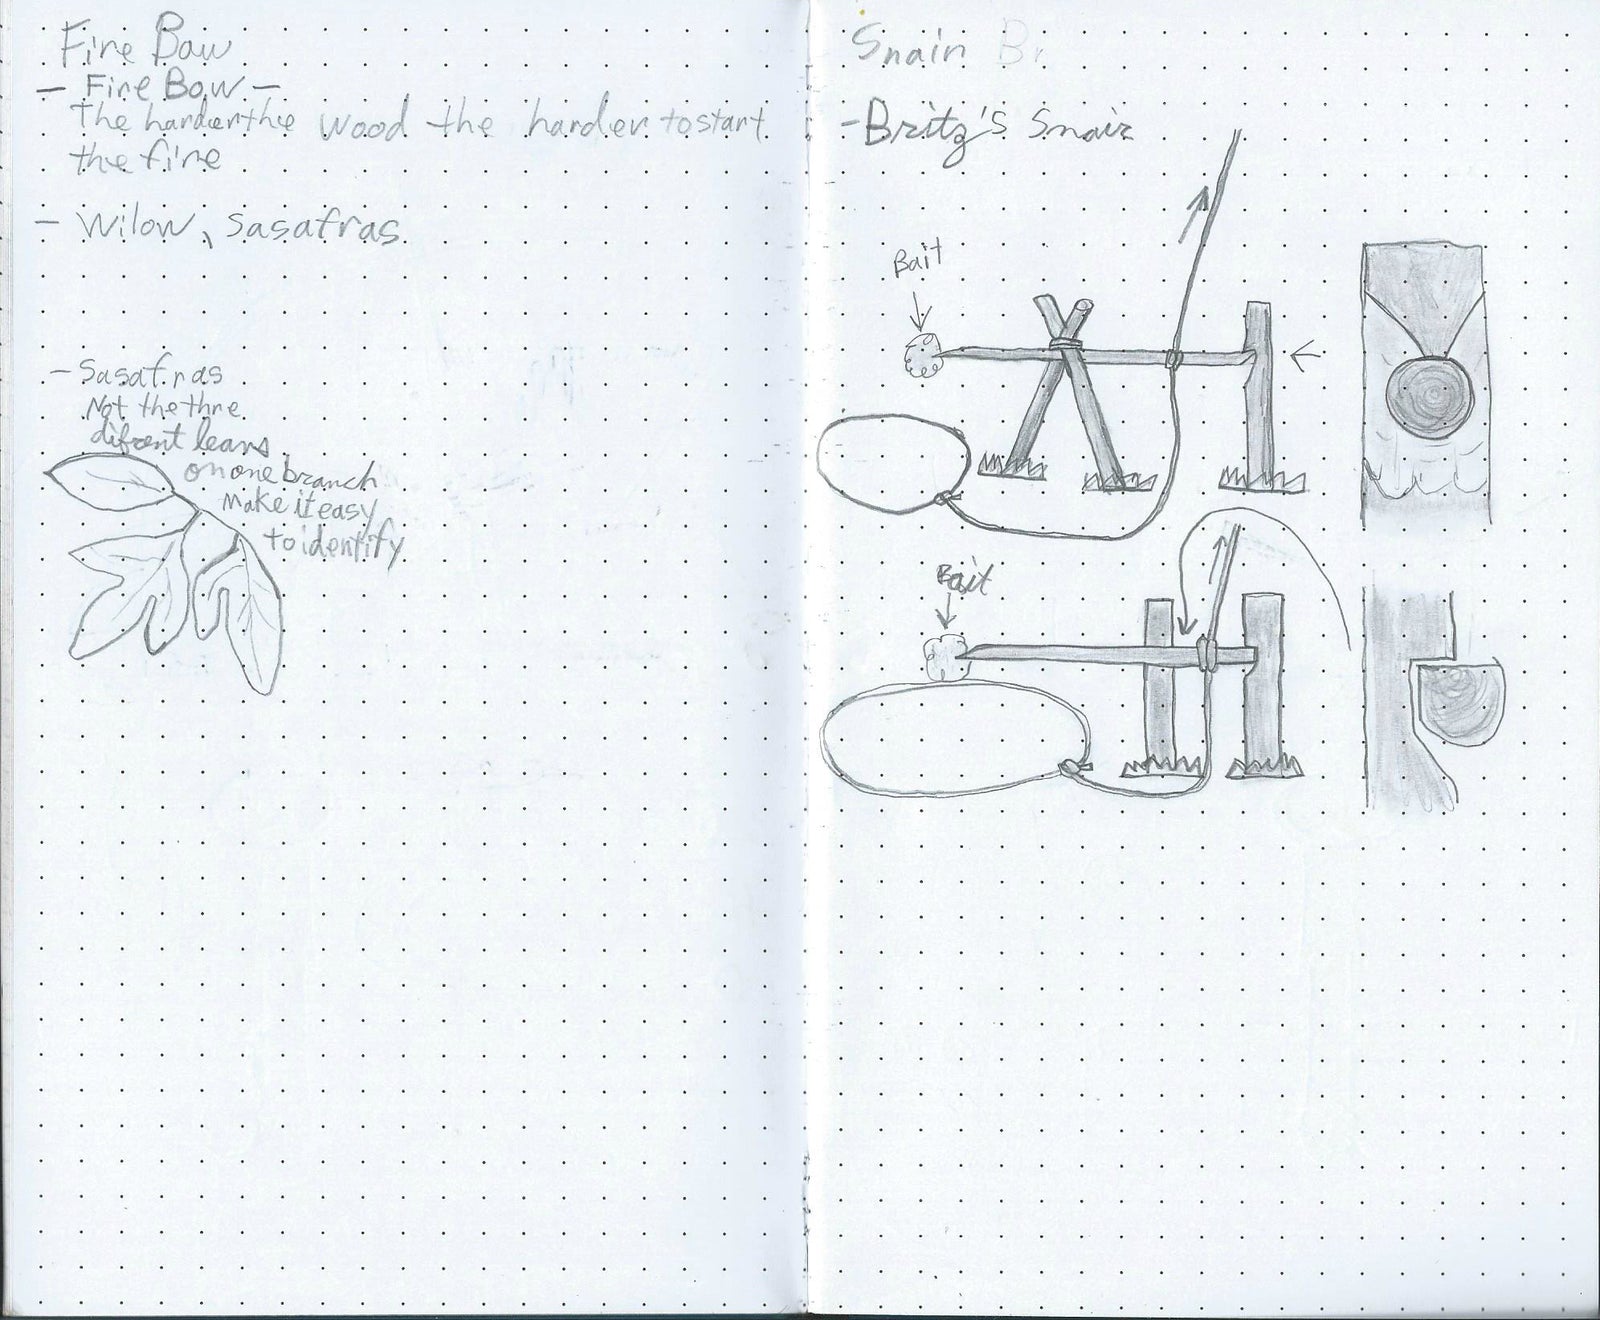 Fire Bow
- Fire Bow -
The harder the wood the harder to start
the fire
- Wilow, Sasafras
- Sasafras
Not the thre
difrent leavs
on one branch
make it easy
to identify
Snair Br
- Britz's Snair
Bait
Bait